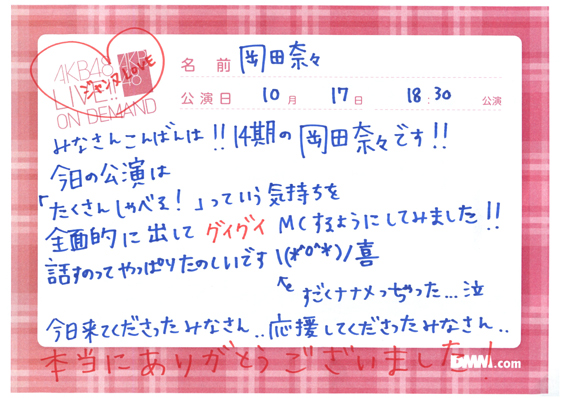 AKB48
LIVE!!
ON DEMAND
AKB
48
ジャンヌLOVE
名 前 岡田奈々
公演日 10月 17日 18:30 公演
みなさんこんばんは!!14期の岡田奈々です!!
今日の公演は
「たくさんしゃべる!」っていう気持ちを
全面的に出して グイグイ MCするようにしてみました!!
話すのってやっぱりたのしいです\(*^o^*)/喜
すごくナナメっちゃった...泣
今日来てくださったみなさん..応援してくださったみなさん..
本当にありがとうございました!
DMM.com